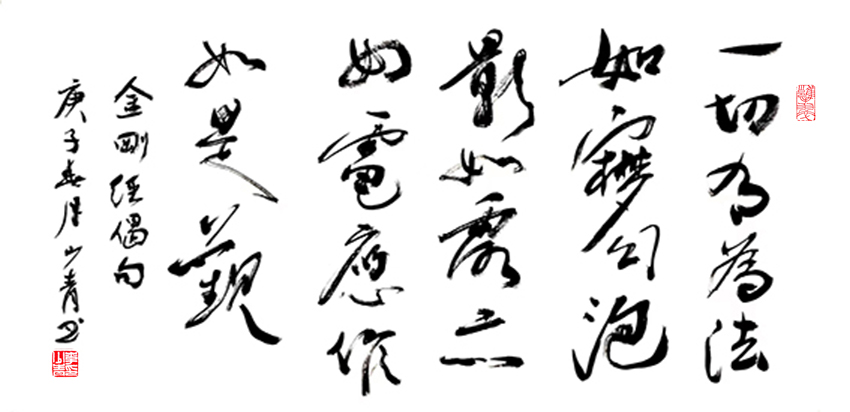 一切有為法
如夢幻泡
影如露亦
如電應作
如是觀
金剛經偈句
庚子春月山青书